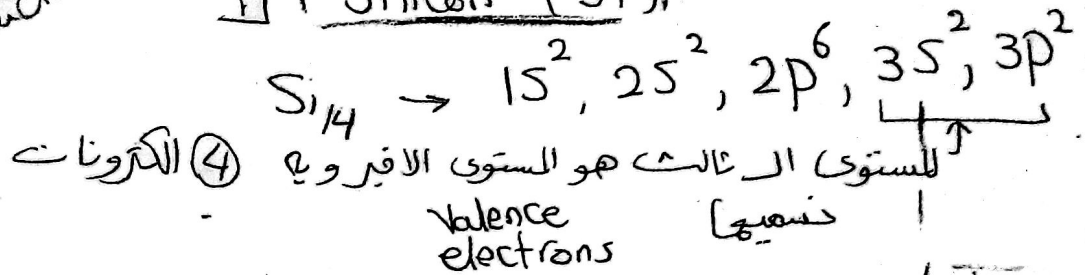 1] Silicon (Si):
Si14 → 1S², 2S², 2p⁶, 3S², 3p²
المستوى الـ ثالث هو المستوى الاخير وبه ④ الكترونات
نسميها Valence electrons